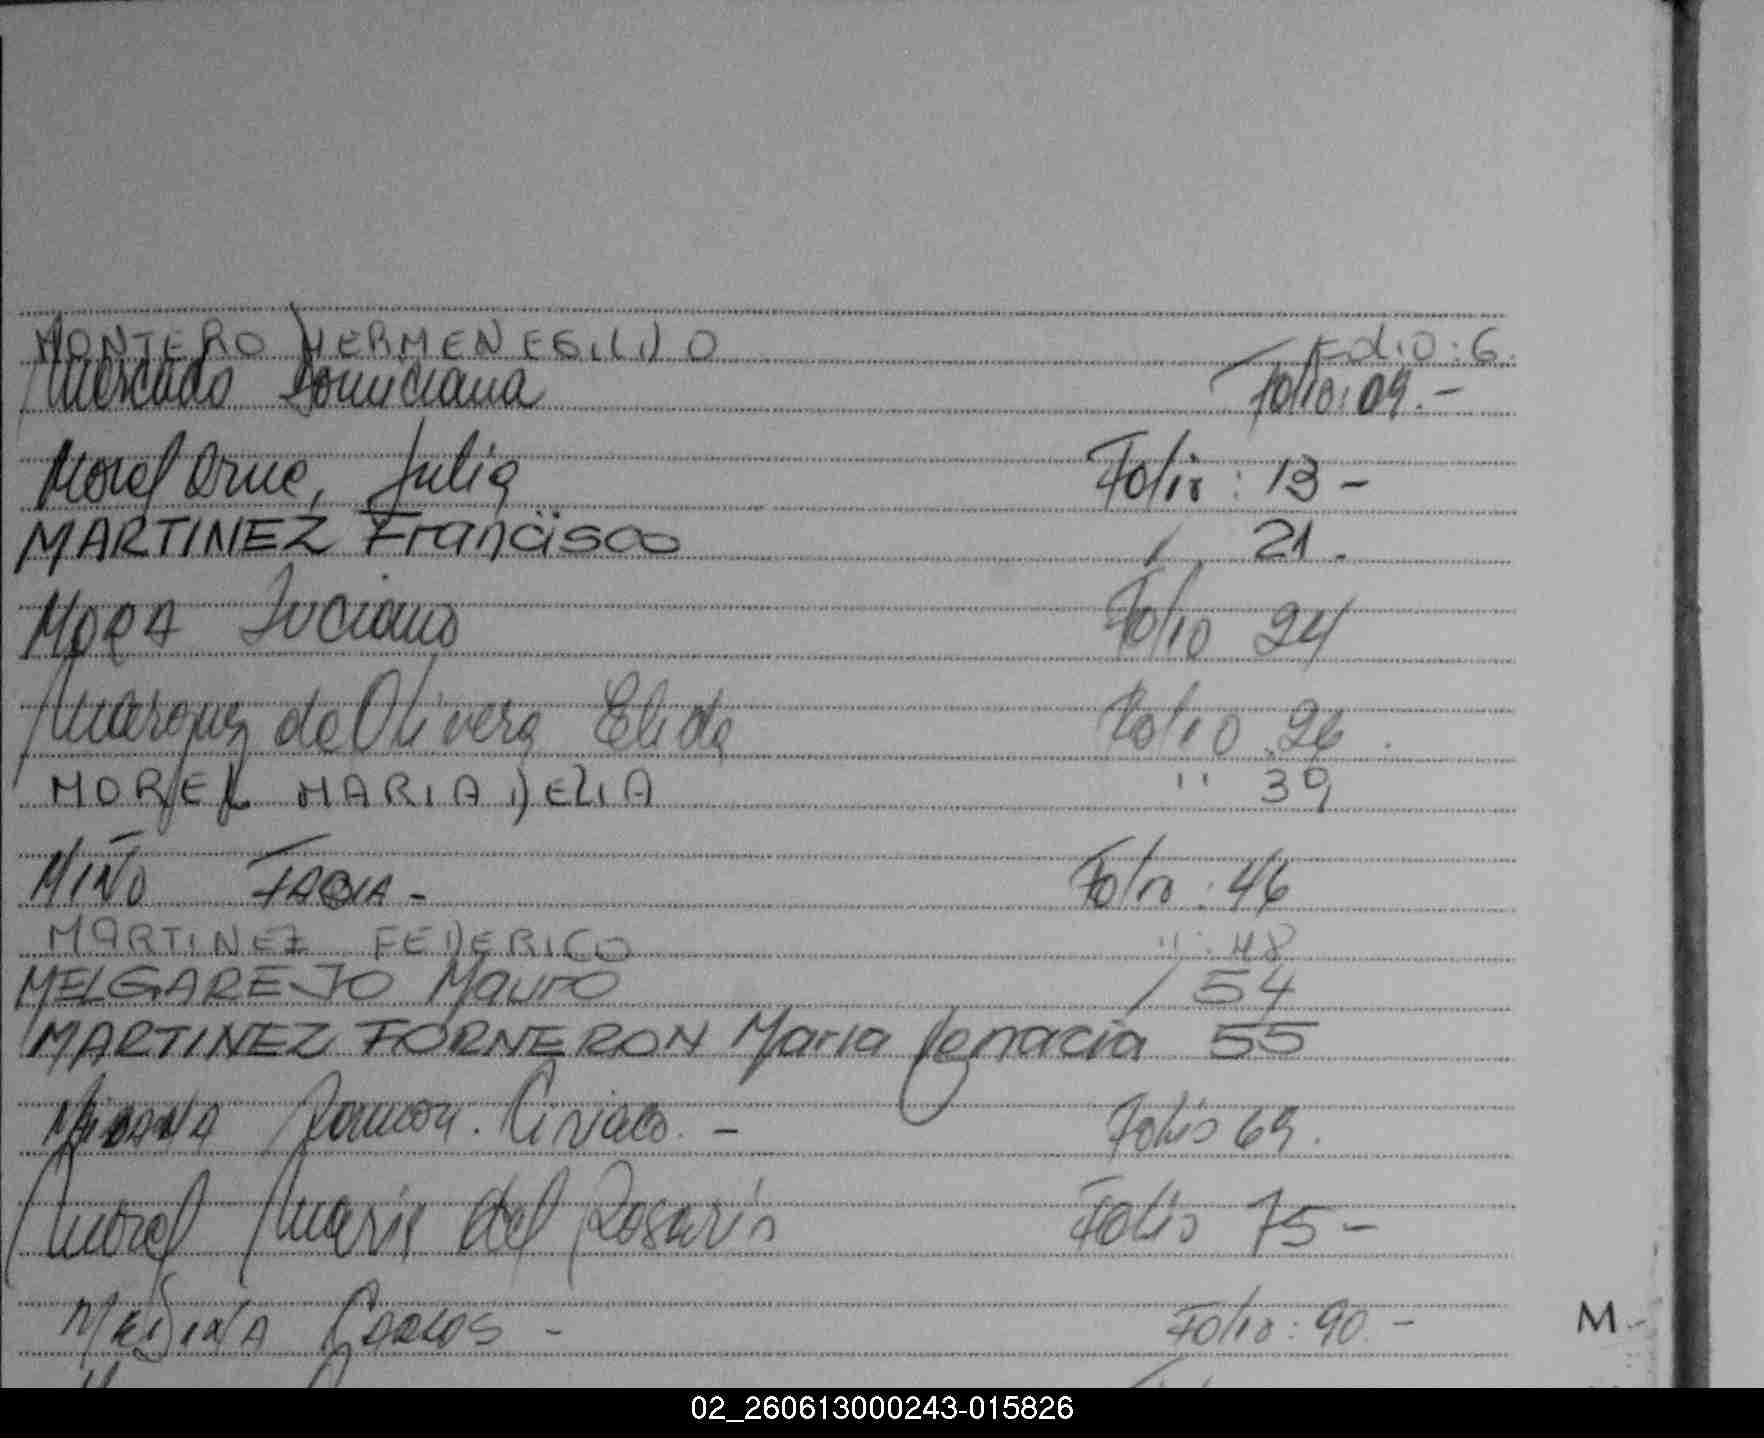 MONTERO HERMENEGILDO Folio: 6.
Mercado Domiciana Folio: 09.-
Morel Orue, Julia Folio: 13-
MARTINEZ Francisco / 21.
MORA Luciano Folio 24
Marquez de Olivera Elida Folio 26.
MOREL MARIA DELIA " 39
MIÑO Folio: 46
MARTINEZ FEDERICO ": 48
MELGAREJO Mauro / 54
MARTINEZ FORNERON Maria Ignacia 55
Ramon Ciriaco.- Folio 69.
Morel Maria del Rosario Folio 75-
MEDINA Carlos - Folio: 90.-
M-
02_260613000243-015826